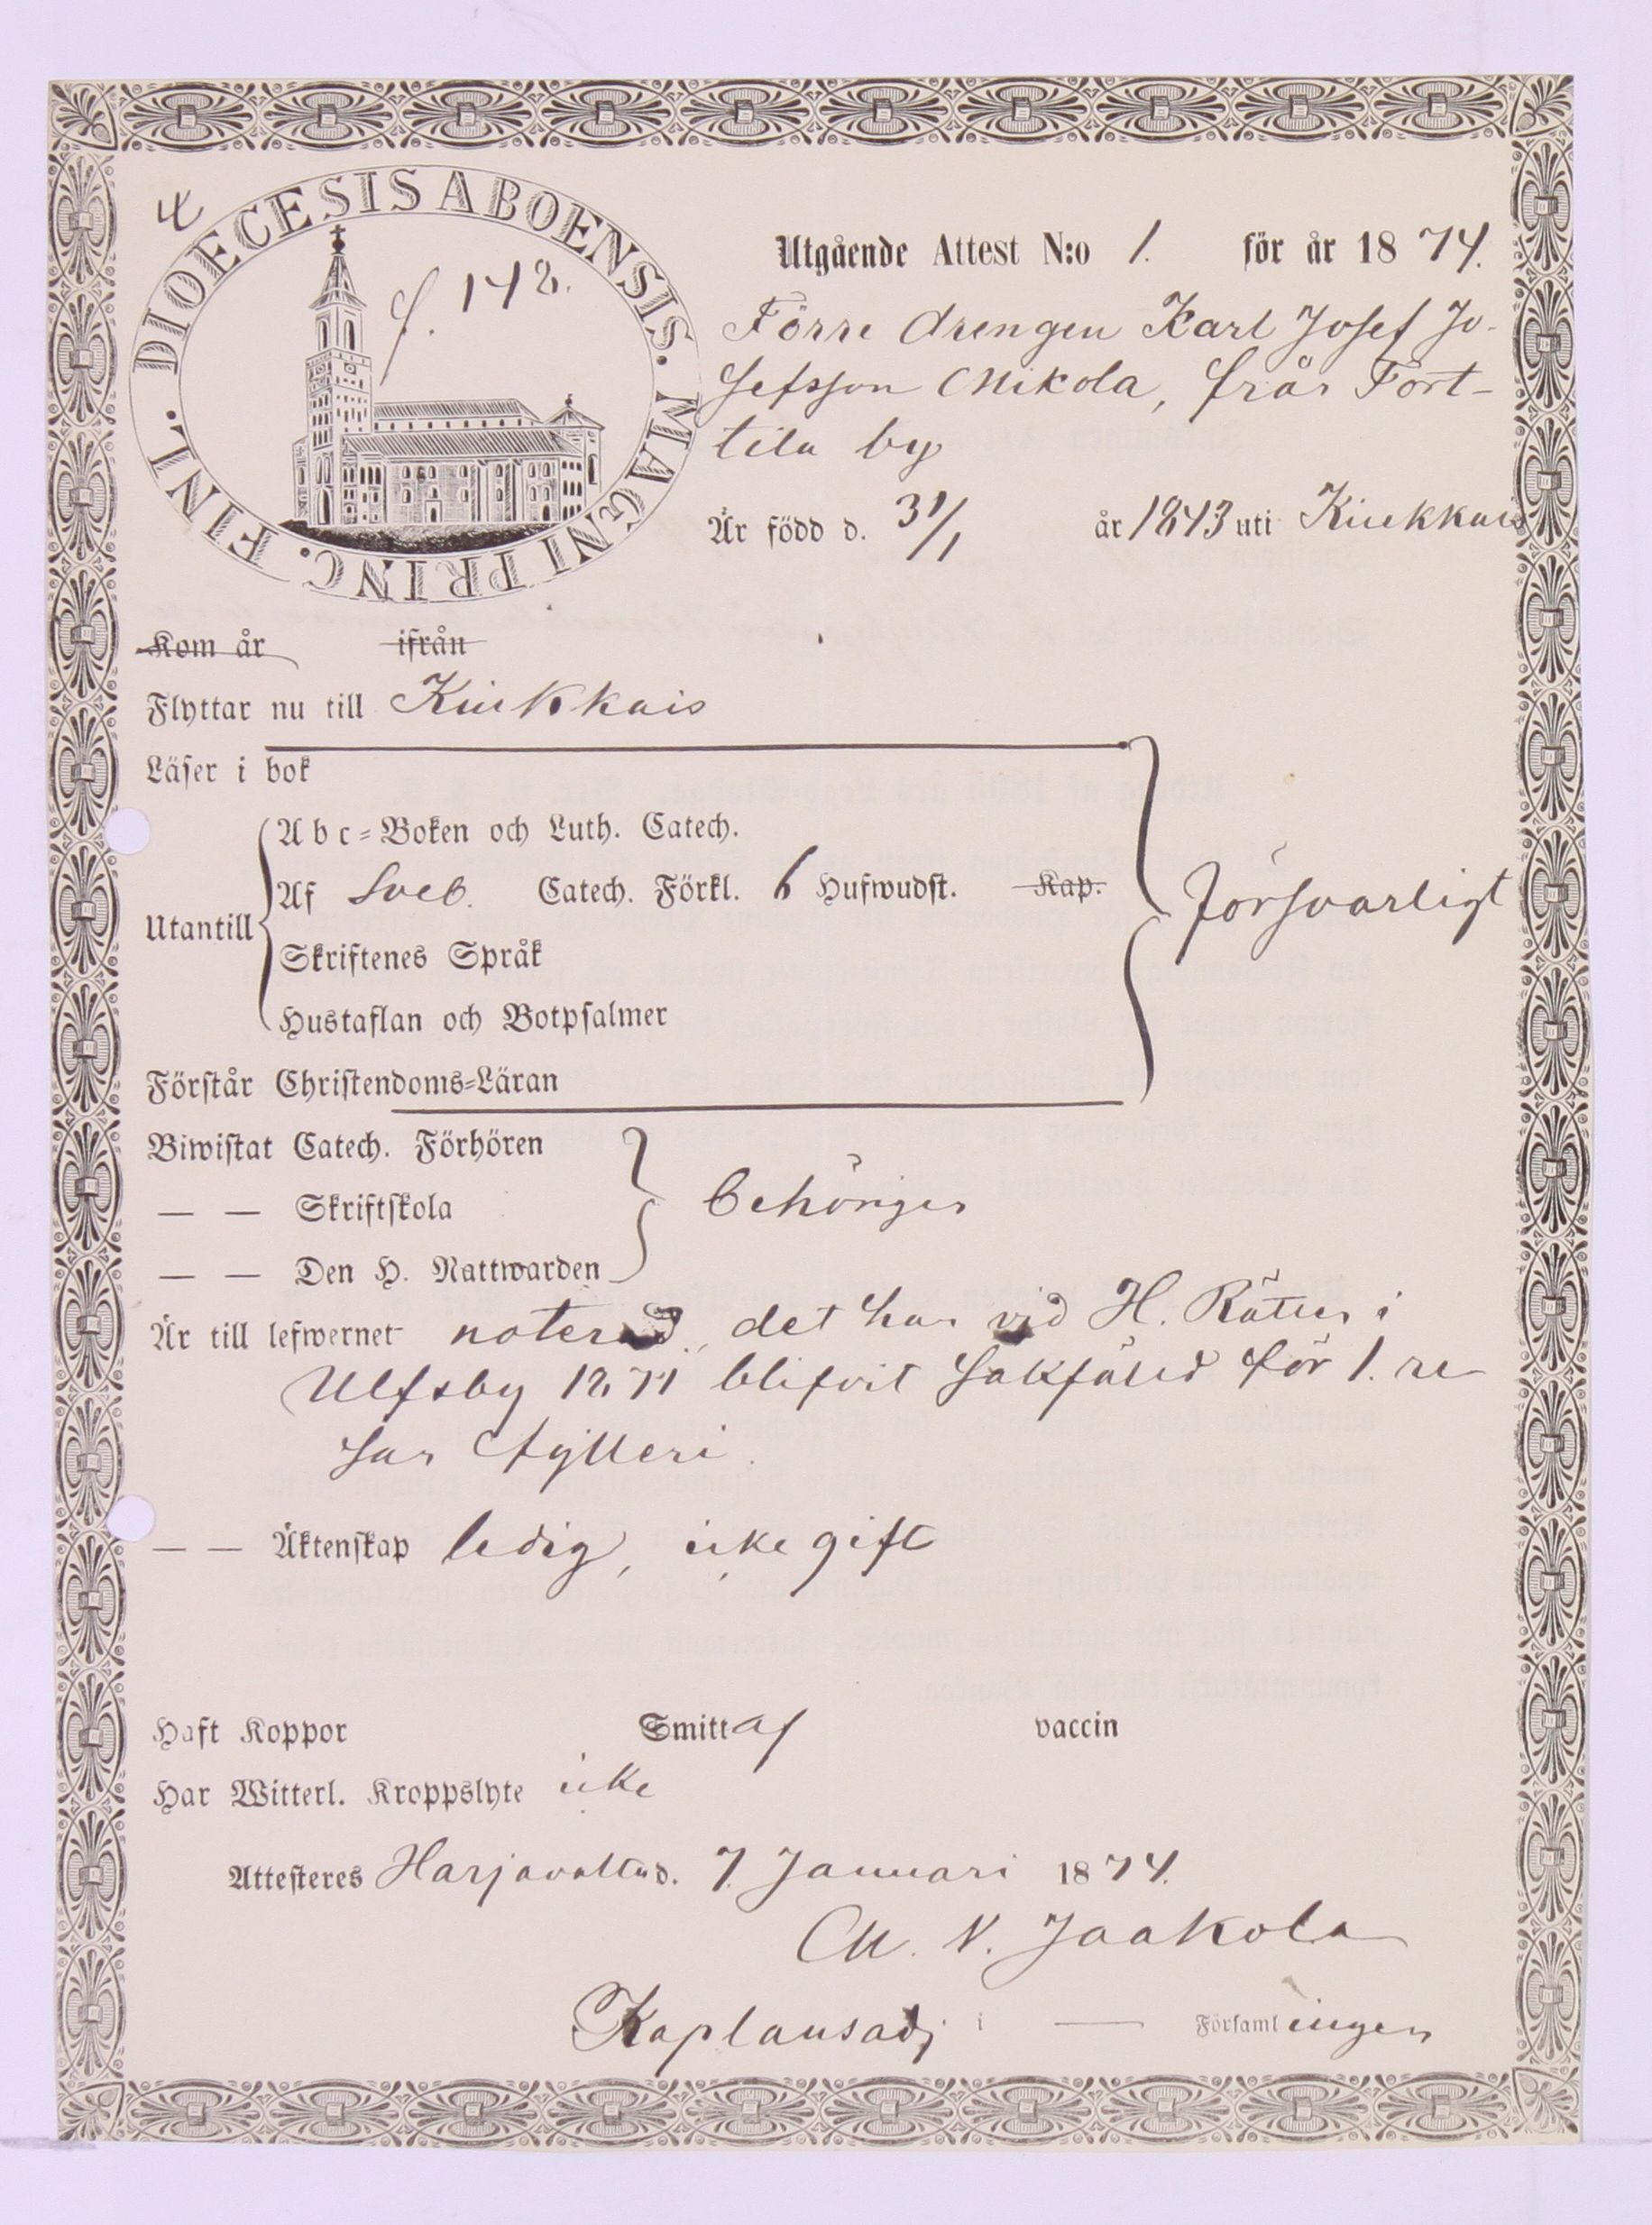 4
DIOECESIS ABOENSIS. MAGNI PRINC. FINL.
f. 148.
Utgående Attest N:o 1. för år 1874.
Förre drengen Karl Josef Jo-
sefsson Mikola, från Tort-
tila by
Är född d. 31/1 år 1843 uti Kiukkais
Kom år ifrån
Flyttar nu till Kiukkais
Läser i bok
Abc=Boken och Luth. Catech.
Af Sveb. Catech. Förkl. 6 Hufwudst. Kap.
försvarligt
Utantill
Skriftenes Språk
Hustaflan och Botpsalmer
Förstår Christendoms=Läran
Biwistat Catech. Förhören
— — Skriftskola behörigen
— — Den H. Nattwarden
Är till lefwernet noterad, det han vid H. Rätten i
Ulfsby 1871 blifvit sakfäld för 1. re
sans fylleri.
— — Äktenskap ledig, icke gift
Haft Koppor Smittaf vaccin
Har Witterl. Kroppslyte icke
Attesteres Harjavalta d. 7. Januari 1874.
M. V. Jaakola
Kaplansadj i — Församlingen